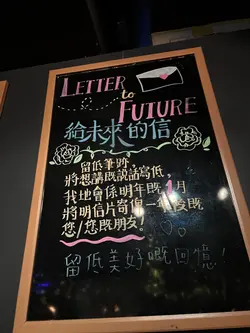 LETTER
to
FUTURE
給未來的信
留低筆跡,
將想講既說話寫低,
我地會係明年既1月
將明信片寄俾一年後既
您/您既朋友。
留低美好嘅回憶!